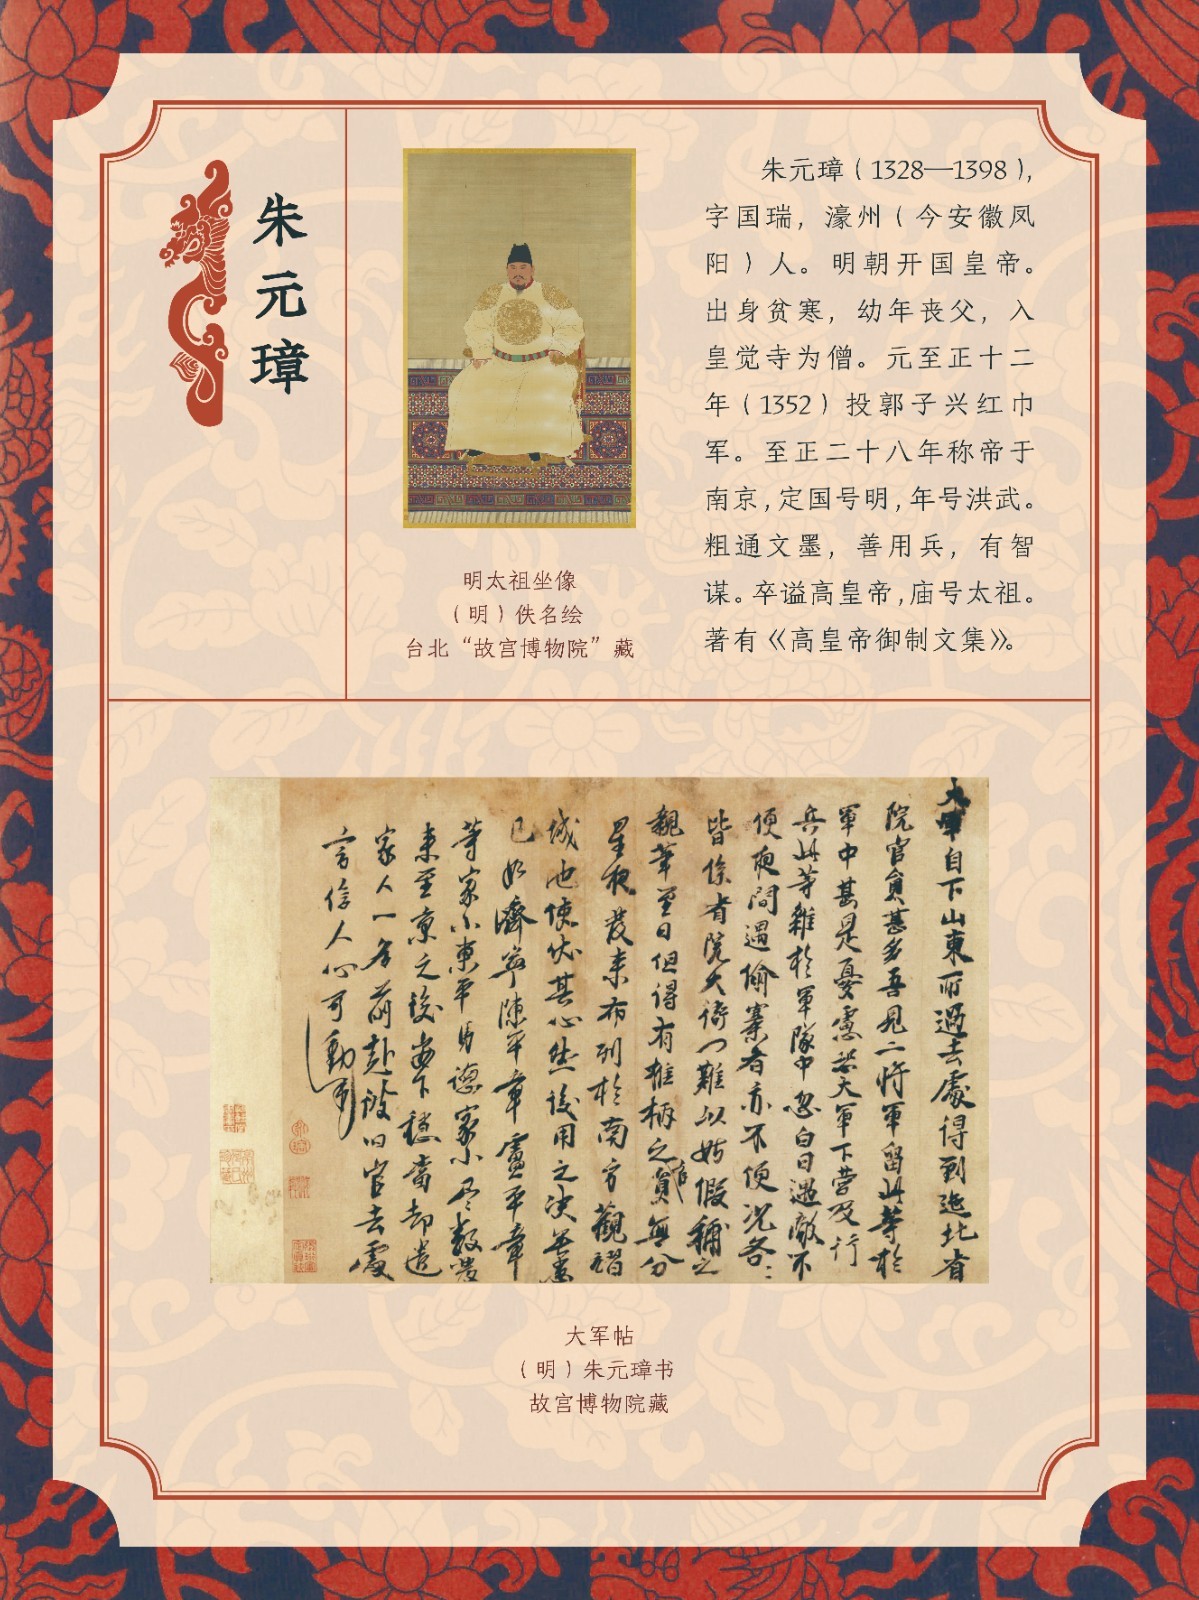 朱元璋
明太祖坐像
（明）佚名绘
台北“故宫博物院”藏
朱元璋（1328—1398），
字国瑞，濠州（今安徽凤
阳）人。明朝开国皇帝。
出身贫寒，幼年丧父，入
皇觉寺为僧。元至正十二
年（1352）投郭子兴红巾
军。至正二十八年称帝于
南京，定国号明，年号洪武。
粗通文墨，善用兵，有智
谋。卒谥高皇帝，庙号太祖。
著有《高皇帝御制文集》。
大軍自下山東所過去處得到迤北省
院官員甚多吾見二將軍留此等於
軍中甚是憂慮恐大軍下營及行
兵此等雜於軍隊中忽白日遇敵不
便夜間遇偷寨者亦不便況各〻
皆係省院大衙门難以姑假補之
親筆至日但得有椎柄之官員無分
星夜發来布列於南方觀
城池使伏其心然後用之決無患
已如濟寧陳平章盧平章
等家小東平馬德家小尽数發
来至京之後安下穩當却遣
家人一名前赴彼旧官去處
言信人心可動
大军帖
（明）朱元璋书
故宫博物院藏